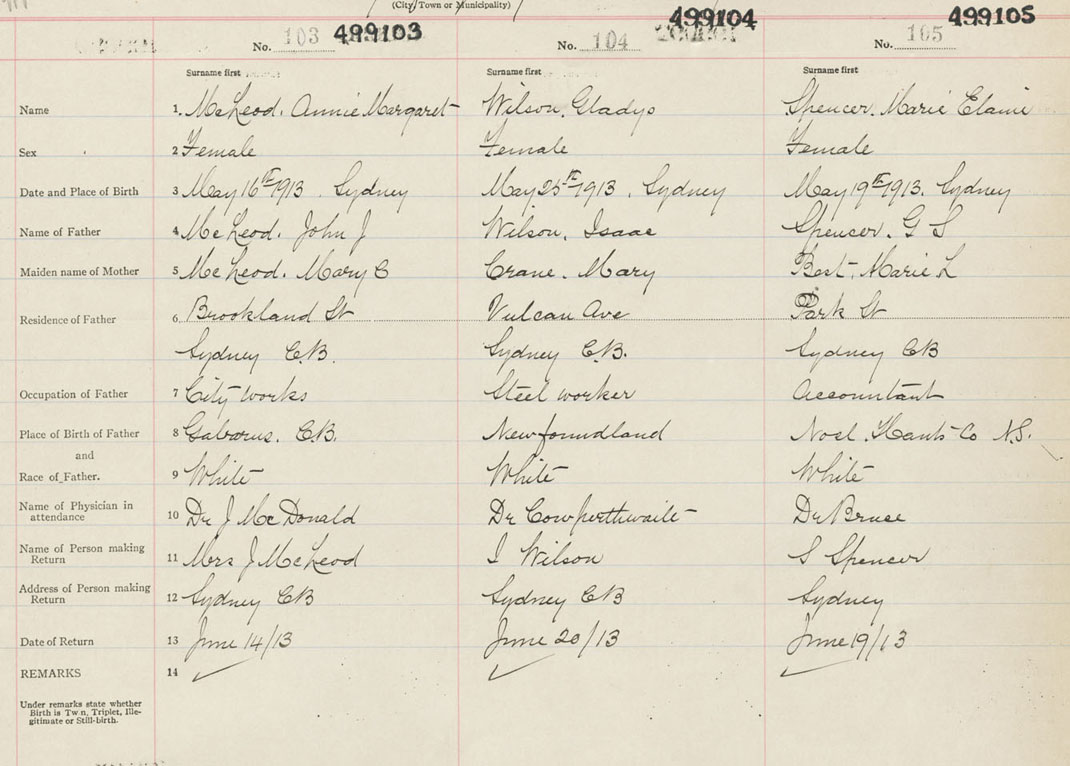 (City, Town or Municipality)
No. 103 499103 No. 104 499104 No. 105 499105
Surname first Surname first Surname first
Name 1. McLeod. Annie Margaret Wilson. Gladys Spencer. Marie Elaine
Sex 2 Female Female Female
Date and Place of Birth 3 May 16th 1913. Sydney May 25th 1913. Sydney May 19th 1913. Sydney
Name of Father 4 McLeod. John J Wilson. Isaac Spencer. G S
Maiden name of Mother 5 McLeod. Mary C Crane. Mary Best. Marie L
Residence of Father 6 Brookland St Vulcan Ave Park St
Sydney C.B. Sydney C.B. Sydney CB
Occupation of Father 7 City works Steel worker Accountant
Place of Birth of Father 8 Gabarus. C.B. Newfoundland Noel. Hants Co N.S.
and
Race of Father. 9 White White White
Name of Physician in attendance 10 Dr J McDonald Dr Cowperthwaite Dr Bruce
Name of Person making Return 11 Mrs J McLeod I Wilson S Spencer
Address of Person making Return 12 Sydney CB Sydney CB Sydney
Date of Return 13 June 14/13 June 20/13 June 19/13
REMARKS 14
Under remarks state whether
Birth is Twin, Triplet, Ille-
gitimate or Still-birth.